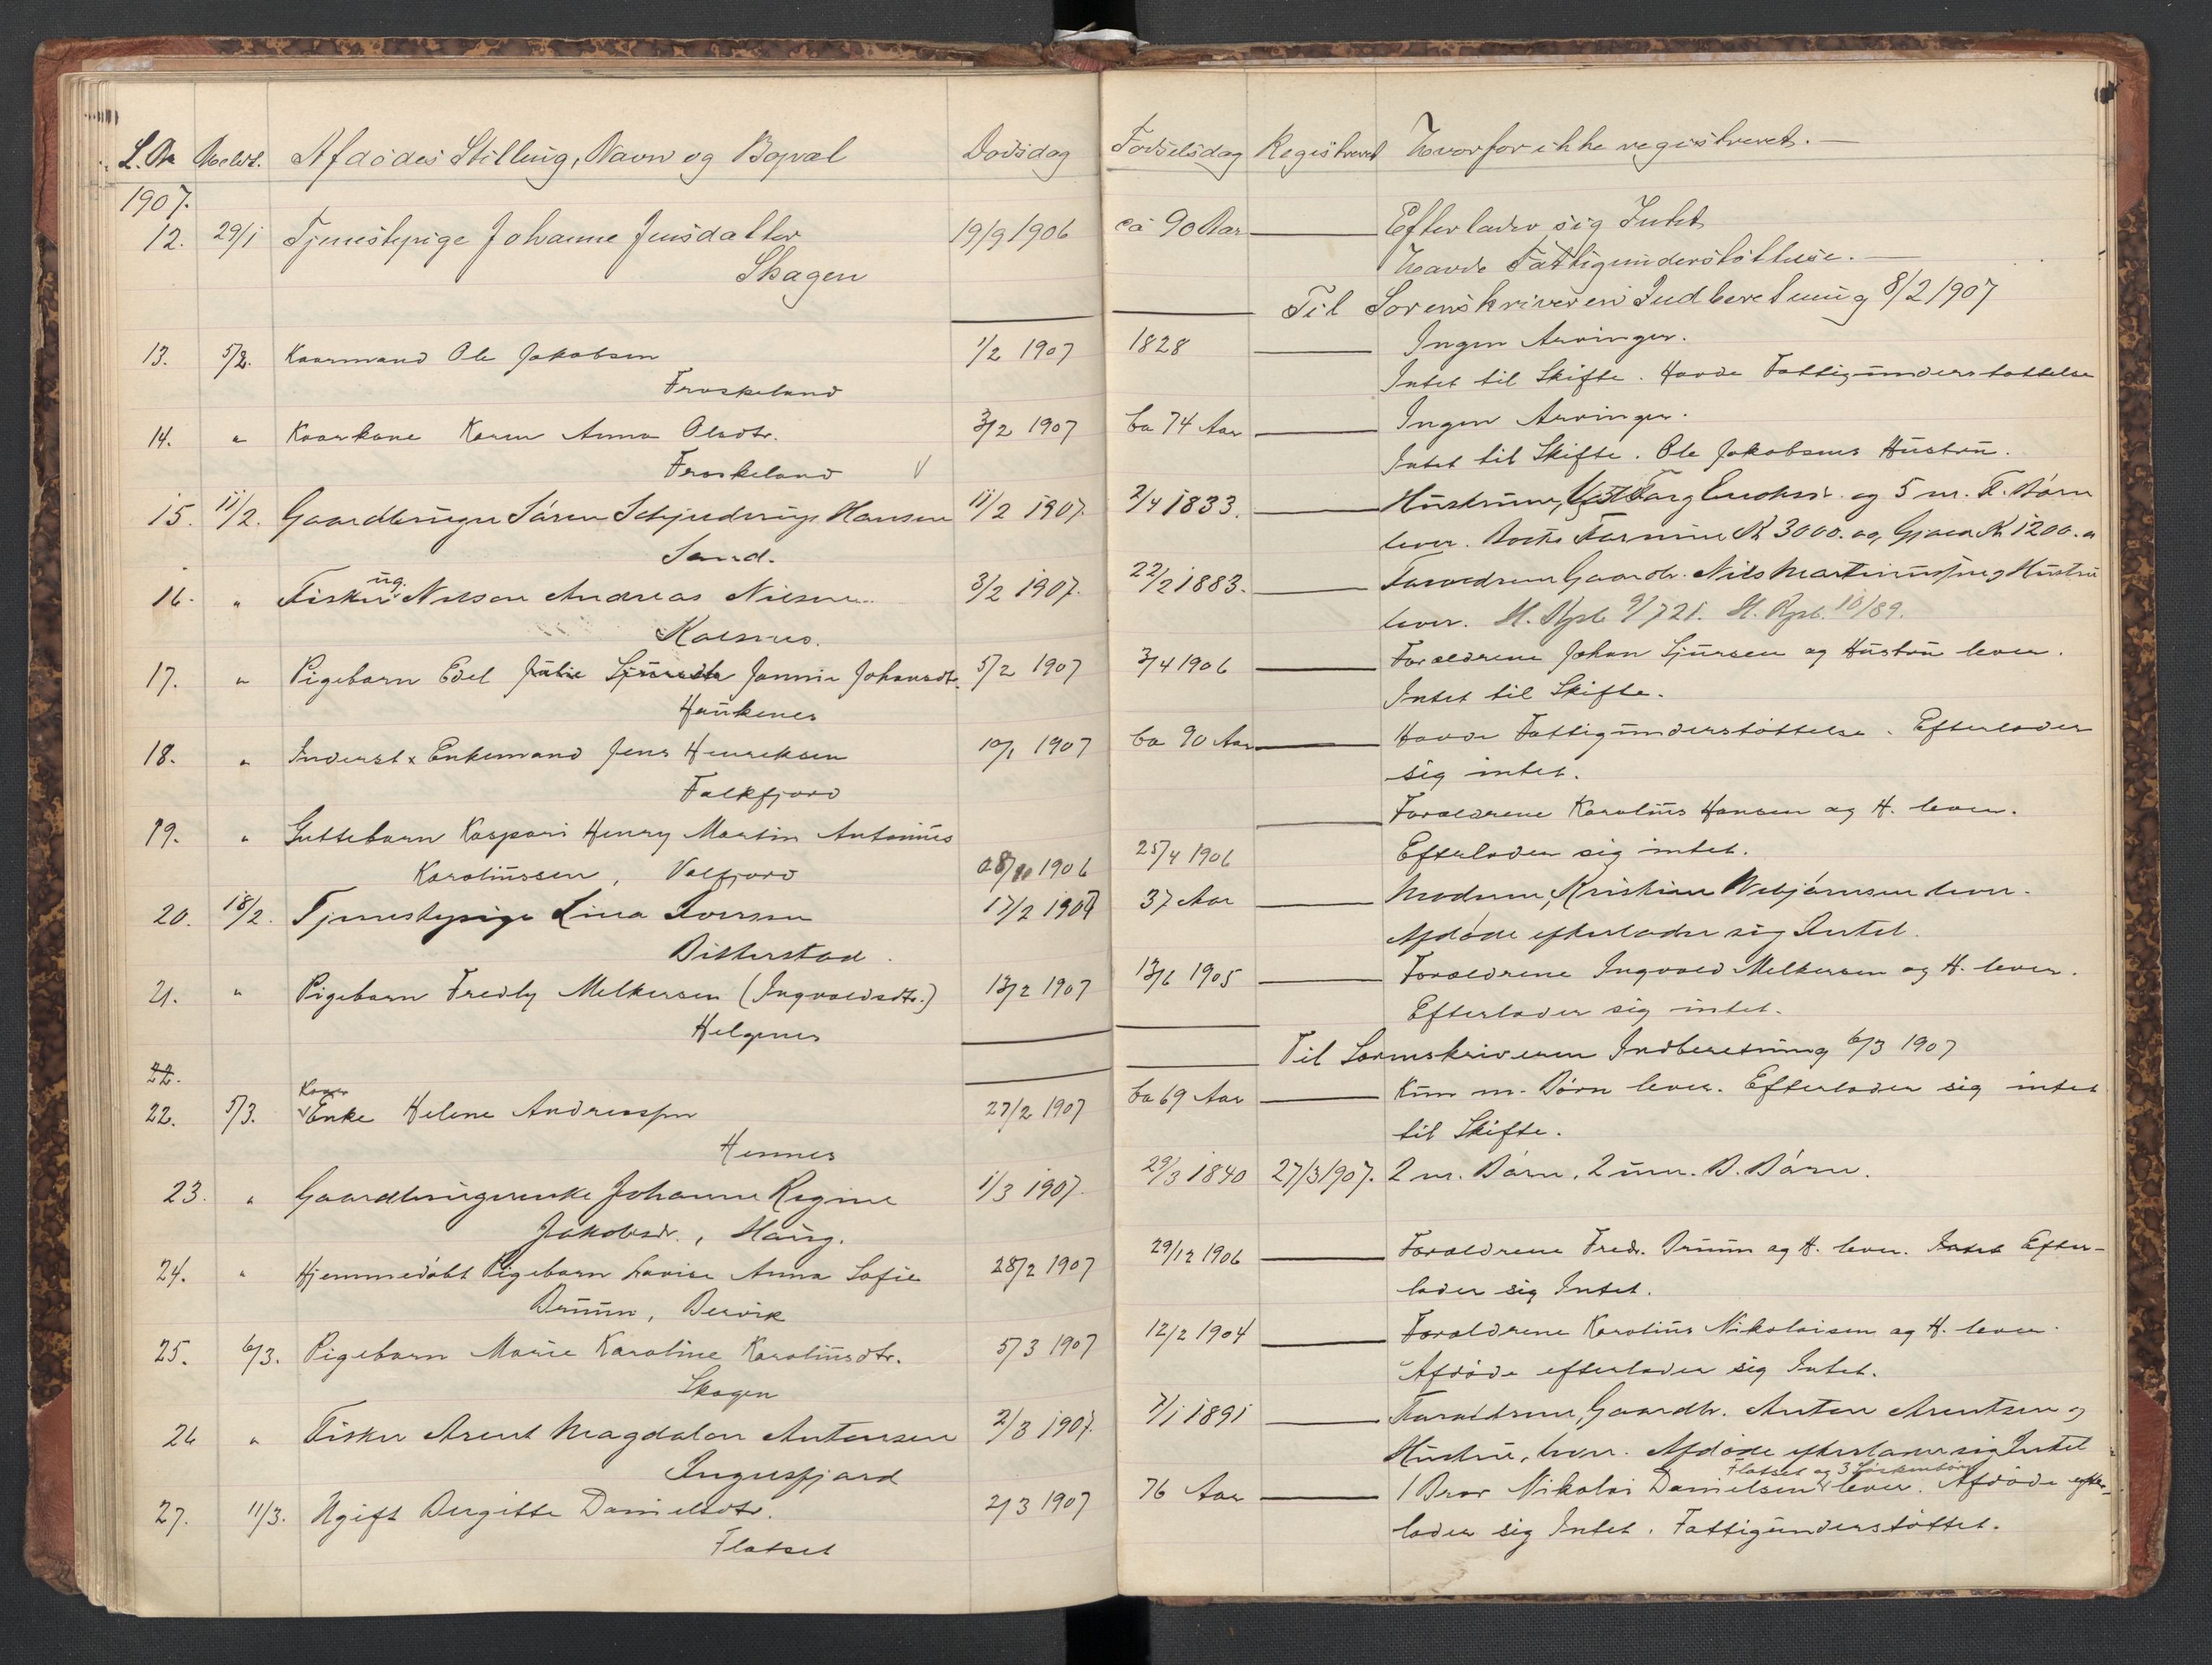 L. Nr Meldt. Afdødes Stilling, Navn og Bopæl Dødsdag Fødselsdag Registreret Hvorfor ikke registreret.
1907.
12. 29/1 Tjenestepige Johanne Jensdatter 19/9 1906 ca 90 Aar Efterlader sig Intet
Skagen Havde Fattigunderstøttelse.
Til Sorenskriveren Indberetning 8/2 1907
13. 5/2. Kaarmand Ole Jakobsen 1/2 1907 1828 Ingen Arvinger.
Froskeland Intet til Skifte. Havde Fattigunderstøttelse
14. " Kaarkone Karen Anna Olsdtr. 3/2 1907 Ca 74 Aar Ingen Arvinger.
Froskeland V Intet til Skifte. Ole Jakobsens Hustru.
15. 11/2. Gaardbruger Søren Schjelderup Hansen 11/2 1907. 2/4 1833. Hustruen, Enoksd. og 5 m. F. Børn
Sand. lever. K 3000. og Gjæld K 1200.
16. " Fisker ug. Nilson Andreas Nilsen 3/2 1907. 22/2 1883. Forældrene Gaardbr. Nils og Hustru
lever.
17. " Pigebarn Edel Julie Sjursdtr Jonnie Johansdt. 5/2 1907 3/4 1906 Forældrene Johan Sjursen og Hustru lever.
Haukenes Intet til Skifte.
18. " Inderst & Enkemand Jens Henriksen 10/1 1907 Ca 90 Aar Havde Fattigunderstøttelse. Efterlader
Falkfjord sig intet.
19. " Guttebarn Kaspari Henry Martin Antonius Forældrene Karolius Hansen og H. lever.
Karoliussen, Valfjord 1906 25/4 1906 Efterlader sig intet.
20. 18/2. Tjenestepige Lina Iversen 17/2 1907 37 Aar Moderen, Kristine Vebjørnsen lever.
Bitterstad. Afdøde efterlader sig Intet.
21. " Pigebarn Fredly Melkersen (Ingvaldsdtr.) 13/2 1907 13/6 1905 Forældrene Ingvald Melkersen og H. lever.
Helgenes Efterlader sig intet.
Til Sorenskriveren Indberetning 6/3 1907
22.
22. 5/3. Kaar Enke Helene Andreassen 27/2 1907 Ca 69 Aar Kun m. Børn lever. Efterlader sig intet
Hennes til Skifte.
23. " Gaardbrugerenke Johanna Regine 1/3 1907. 29/3 1840 27/3 1907. 2 m. Børn, 2 um. B. Børn.
Jakobsdr., Haug.
24. " Hjemmedøbt Pigebarn Lovise Anna Sofie 28/2 1907 29/12 1906 Forældrene Fredr. Bruun og H. lever. Intet Efter-
Bruun, Bervik lader sig Intet.
25. 6/3. Pigebarn Marie Karoline Karoliusdtr. 5/3 1907 12/2 1904 Forældrene Karolius Nikolaisen og H. lever.
Skagen Afdøde efterlader sig Intet.
26 " Fisker Arent Magdalon Antonsen 2/3 1907. 7/1 1891 Forældrene, Gaardbr. Anton Arentsen og
Ingusfjord Hustru, lever. Afdøde efterlader sig Intet
27. 11/3. Ugift Bergitte Danielsdtr. 2/3 1907 76 Aar 1 Bror Nikolai Danielsen Flatset og 3 Søskenbørn lever. Afdøde efter-
Flatset lader sig Intet. Fattigunderstøttet.